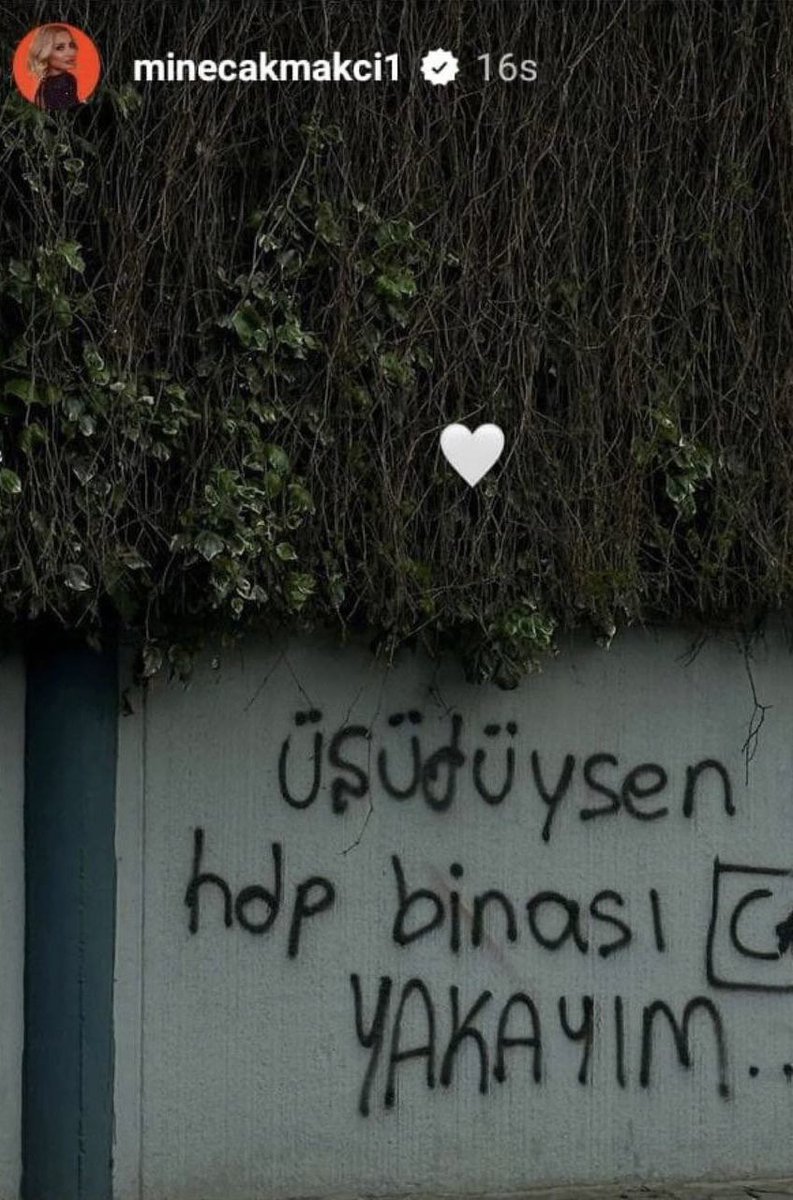 minecakmakci1 16s
üşüdüysen
hdp binası
YAKAYIM..